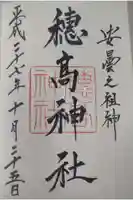 安曇之祖神
穗髙神社
平成二十七年十月二十五日